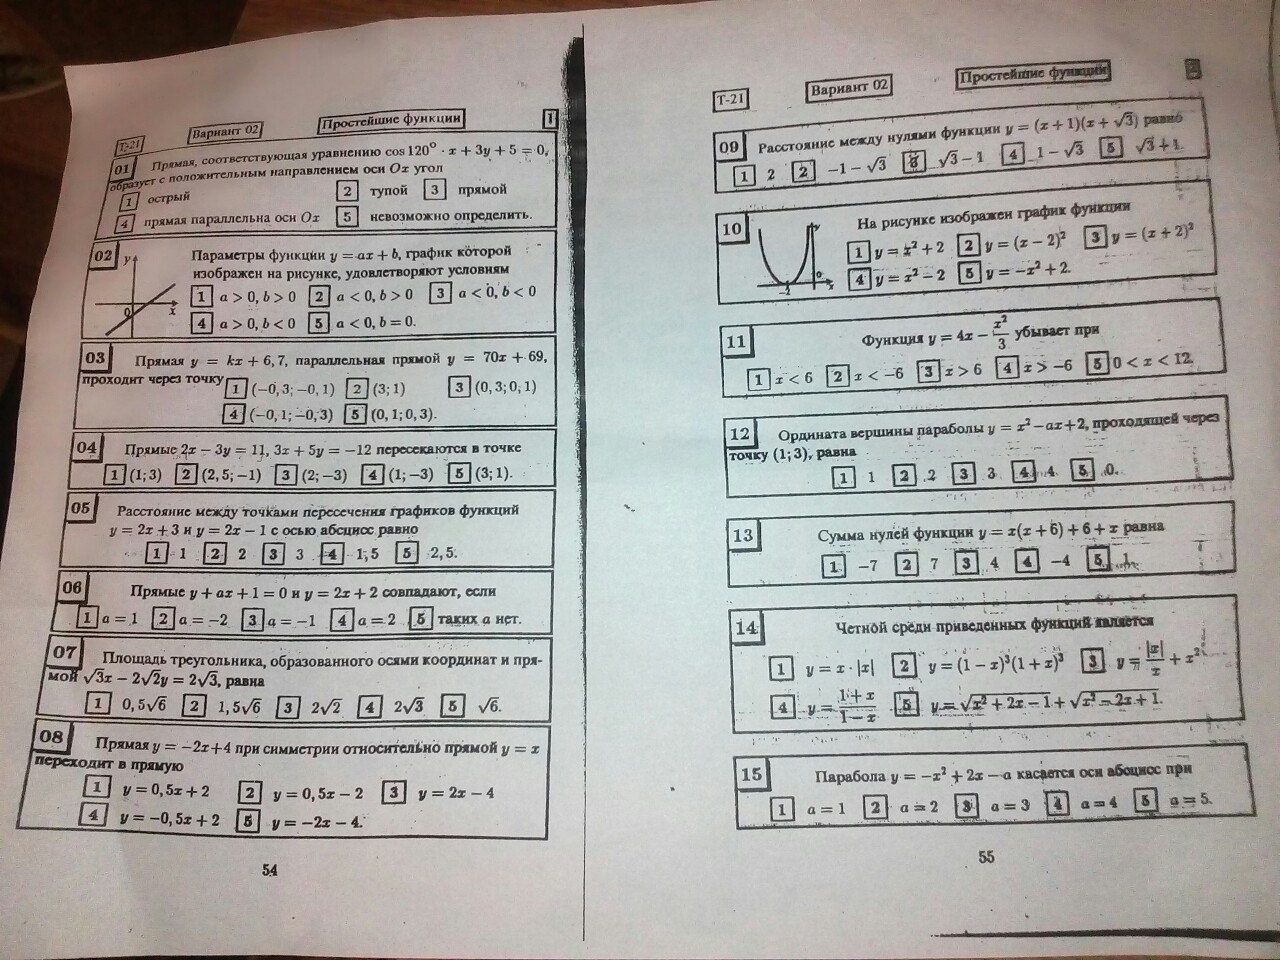 Т-21 Вариант 02 Простейшие функции 1
01 Прямая, соответствующая уравнению cos 120° · x + 3y + 5 = 0,
образует с положительным направлением оси Ox угол
1 острый 2 тупой 3 прямой
4 прямая параллельна оси Ox 5 невозможно определить.
02 Параметры функции y = ax + b, график которой
изображен на рисунке, удовлетворяют условиям
y 0 x
1 a > 0, b > 0 2 a < 0, b > 0 3 a < 0, b < 0
4 a > 0, b < 0 5 a < 0, b = 0.
03 Прямая y = kx + 6,7, параллельная прямой y = 70x + 69,
проходит через точку 1 (−0,3; −0,1) 2 (3; 1) 3 (0,3; 0,1)
4 (−0,1; −0,3) 5 (0,1; 0,3).
04 Прямые 2x − 3y = 11, 3x + 5y = −12 пересекаются в точке
1 (1; 3) 2 (2,5; −1) 3 (2; −3) 4 (1; −3) 5 (3; 1).
05 Расстояние между точками пересечения графиков функций
y = 2x + 3 и y = 2x − 1 с осью абсцисс равно
1 1 2 2 3 3 4 1,5 5 2,5.
06 Прямые y + ax + 1 = 0 и y = 2x + 2 совпадают, если
1 a = 1 2 a = −2 3 a = −1 4 a = 2 5 таких a нет.
07 Площадь треугольника, образованного осями координат и пря-
мой √3x − 2√2y = 2√3, равна
1 0,5√6 2 1,5√6 3 2√2 4 2√3 5 √6.
08 Прямая y = −2x+4 при симметрии относительно прямой y = x
переходит в прямую
1 y = 0,5x + 2 2 y = 0,5x − 2 3 y = 2x − 4
4 y = −0,5x + 2 5 y = −2x − 4.
54
Т-21 Вариант 02 Простейшие функции
09 Расстояние между нулями функции y = (x + 1)(x + √3) равно
1 2 2 −1 − √3 3 √3 − 1 4 1 − √3 5 √3 + 1.
10 На рисунке изображен график функции
y 0 x −2
1 y = x² + 2 2 y = (x − 2)² 3 y = (x + 2)²
4 y = x² − 2 5 y = −x² + 2.
11 Функция y = 4x − x²/3 убывает при
1 x < 6 2 x < −6 3 x > 6 4 x > −6 5 0 < x < 12.
12 Ордината вершины параболы y = x² − ax + 2, проходящей через
точку (1; 3), равна
1 1 2 2 3 3 4 4 5 0.
13 Сумма нулей функции y = x(x + 6) + 6 + x равна
1 −7 2 7 3 4 4 −4 5 1.
14 Четной среди приведенных функций является
1 y = x · |x| 2 y = (1 − x)³(1 + x)³ 3 y = |x|/x + x²
4 y = (1 + x)/(1 − x) 5 y = √(x² + 2x − 1) + √(x² − 2x + 1).
15 Парабола y = −x² + 2x − a касается оси абсцисс при
1 a = 1 2 a = 2 3 a = 3 4 a = 4 5 a = 5.
55